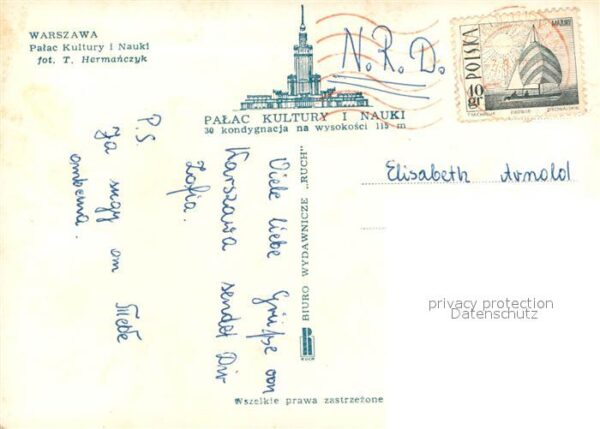 WARSZAWA
Pałac Kultury i Nauki
fot. T. Hermańczyk
N.R.D.
POLSKA
40 gr
PAŁAC KULTURY I NAUKI
30 kondygnacja na wysokości 115 m
Elisabeth Arnold
Viele liebe Grüße von
Warszawa sendet Dir
Zofia.
P.S
BIURO WYDAWNICZE „RUCH"
RUCH
Wszelkie prawa zastrzeżone
privacy protection
Datenschutz